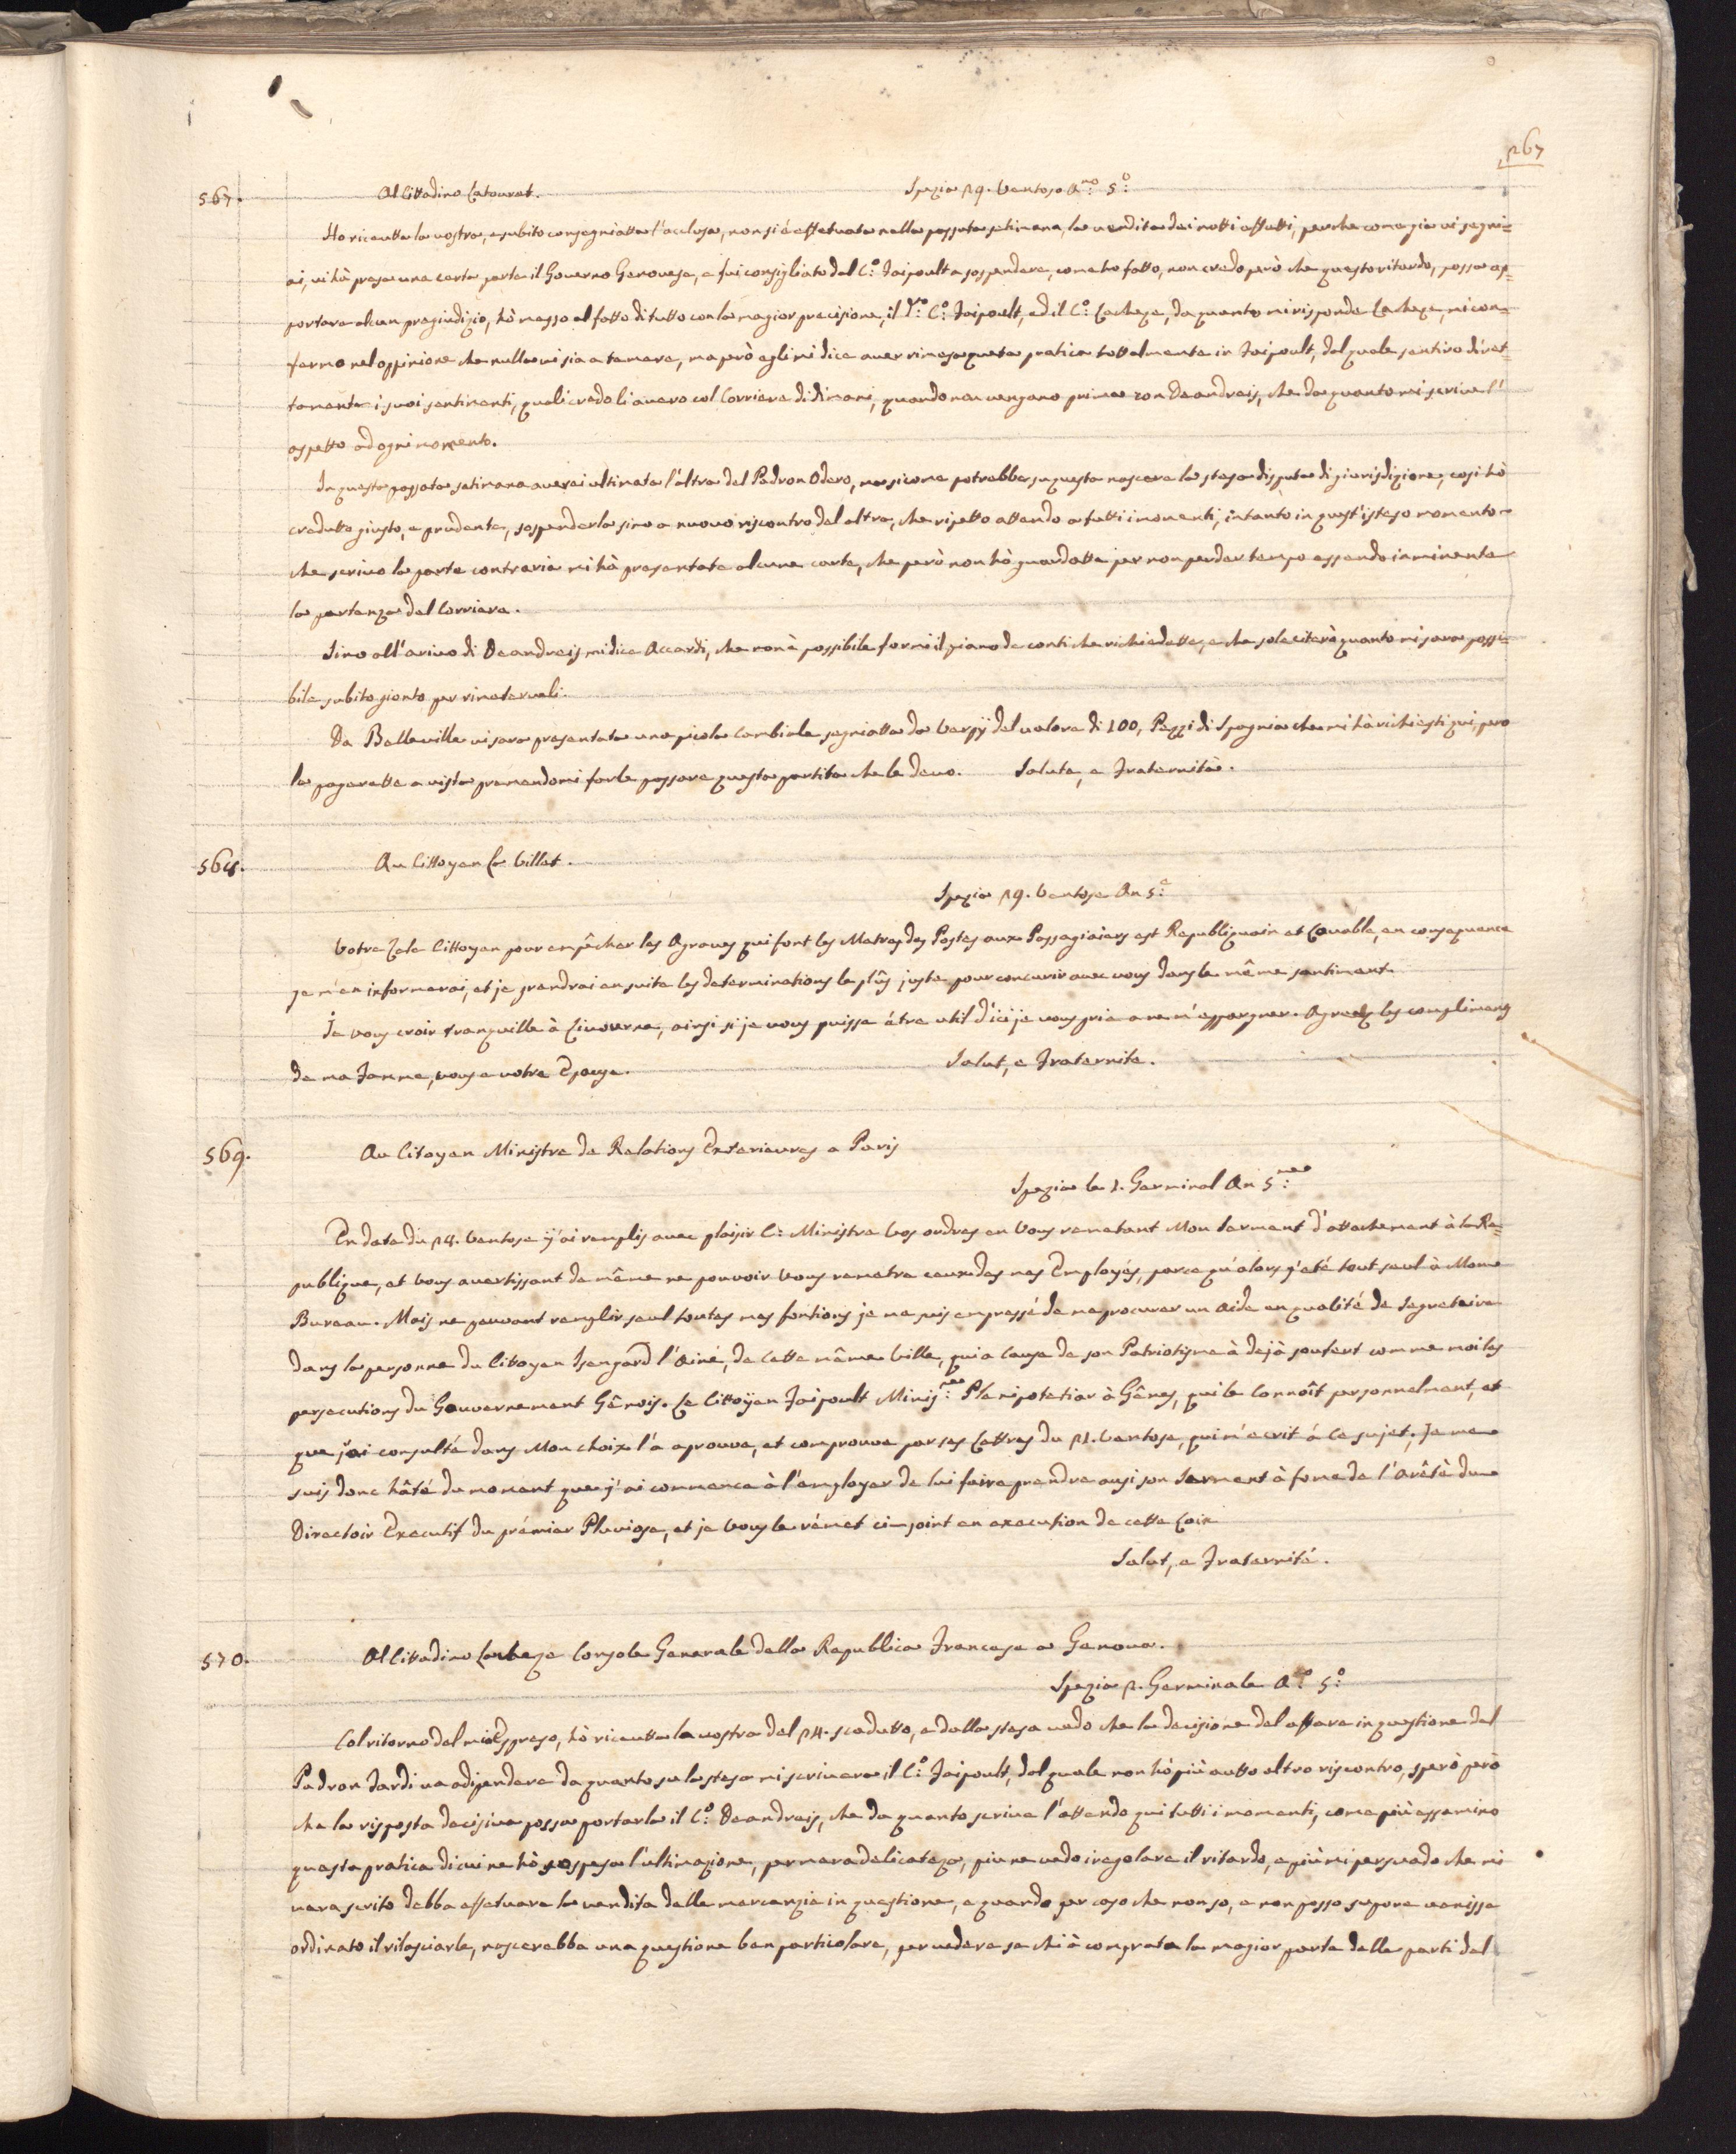 267
567. Al Cittadino Latouret. Spezia 29. Ventoso A.no 5.o
Ho riceutta la vostra, e subito consegniatta l'acclusa, non si é effetuata nella passata setimana, la vendita dei notti effetti, perche come gia vi segni=
ai, vi hà preso una certa parte il Governo Genovese, e fui consigliato dal C.o Faipoult a sospendere, come ho fatto, non credo però che questo ritardo, possa ap=
portare alcun pregiudizio, hò messo al fatto di tutto con la magior precisione, il d.o C.o Faipoult, ed il C.o Lacheze, da quanto mi risponde Lacheze, mi con=
fermo nel oppinione che nulla vi sia a temere, ma però egli mi dice aver rimesso questa pratica tottalmente in Faipoult, dal quale sentiro diret=
tamente i suoi sentimenti, quali credo li avero col Corriere di dimani, quando non vengano prima con Deandreis, che da quanto mi scrive l'
aspetto ad ogni momento.
In questa passata setimana averei ultimata l'altra del Padron Odero, ma sicome potrebbe su questa nascere la stesa disputa di giurisdizione, cosi hò
credutto giusto, e prudente, sospenderla sino a nuovo riscontro del altra, che ripetto attendo a tutti i momenti, intantò in quest'isteso momento
che scrivo la parte contraria mi hà presentate alcune carte, che però non hò guardatte per non perder tempo essendo inminente
la partenza del Corriere.
Sino all'arivo di Deandreis mi dice Accardi, che non è possibile farmi il piano de conti che richiedette, e che soleciterò quanto mi sara possi=
bile subito gionto per rimetervelì.
Da Belleville vi sara presentata una picola Cambiale segniatta da Verpÿ del valore di 100, Pezzi di Spagnia che mi hà richiesti qui, pero
la pagarette a vista premendomi farle passare questa partita che le devo. Salute, e Fraternità.
568. Au Cittoyen Le Villet.
Spezia 29. Ventose An 5.e
Votre Zele Cittoyen pour empêcher les Agraves qui font les Matres des Postes aux Passagiaiers est Republiquain et Louable, en consequence
je m'en informerai, et je prendrai en suite les determinations le plûs juste pour concurir avec vous dans le même sentiment.
Je vous croir tranquille à Livourne, ainsi si je vous puisse átre util d'ici je vous prie a ne m'eppargner. Agreéz les complimens
de ma Famme, vous e votre Epouse. Salut, e Fraternite.
569. Au Citoyen Ministre de Relations Exterieures a Paris
Spezia le 1. Germinal An 5.me
En date du 24. Ventose ÿ'ai remplis avec plaisir C: Ministre Vos ordres en Vous remetant Mon Serment d'attachement à la Re=
publique, et Vous avertissant de même ne pouvoir Vous remetre ceux des mes Employés, parce qu'alors j'eté tout seul à Mome
Bureau. Mais ne pouvant remplir seul toutes mes fontions je me suis empressé de me procurer un aide en qualité de Segretaire
dans la personne du Cittoyen Isengard l'ainé, de Cette même Ville, qui a Cause de son Patriotisme à dejà soufert comme moi les
persecutions du Gouvernement Gênois. Le Cittoÿen Faipoult Minis:re Plenipotetier à Gênes, qui le Connoît personnelment, et
que j'ai consulté dans Mon choix l'à aprouve, et comprouve par ses Lettres du 21. Ventose, qui m'ecrit á Ce sujet. Je me
suis donc hâté du moment que j'ai commence à l'employer de lui faire prendre ausi son Serment à forme de l'arêtè du
Directoir Executif du prémier Pluviose, et je Vous le rémet cinjoint en execution de cette Loix
Salut, e Fraternité.
570. Al Cittadino Lacheze Console Generale della Republica Francese a Genova.
Spezia 2. Germinale A.o 5.o
Col ritorno del mio Espreso, hò riceutta la vostra del 24. scadutto, e dalla stesa vedo che la decisione del affare in questione del
Padron Dardi va adipendere da quanto su la stesa mi scrivera il C.o Faipoult, dal quale non hò più autto altro riscontro, sperò però
che la risposta decisiva possa portarla il C.o Deandreis, che da quanto scrive l'attendo qui tutti i momenti, come più essamino
questa pratica di cui ne hò sospesa l'ultimazione, per mera delicateza, piu ne vedo iregolare il ritardo, e più mi persuado che mi
vera scrito debba effetuare la vendita delle mercanzie in questione, e quando per caso che non so, e non posso supore venisse
ordinato il rilasciarle, nascerebbe una questione ben particolare, per vedere se chi à comprata la magior parte delle parti del